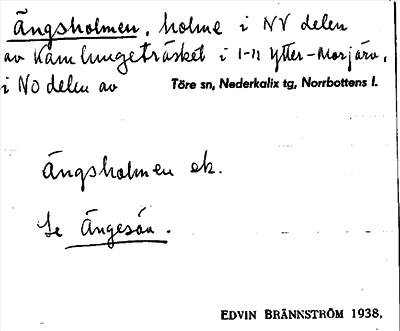 Ängsholmen, holme i NV delen
av Kamlungeträsket i 1-n Ytter-Morjärv,
i NO delen av Töre sn, Nederkalix tg, Norrbottens l.
Ängsholmen ek.
Se Ängesån.
EDVIN BRÄNNSTRÖM 1938.